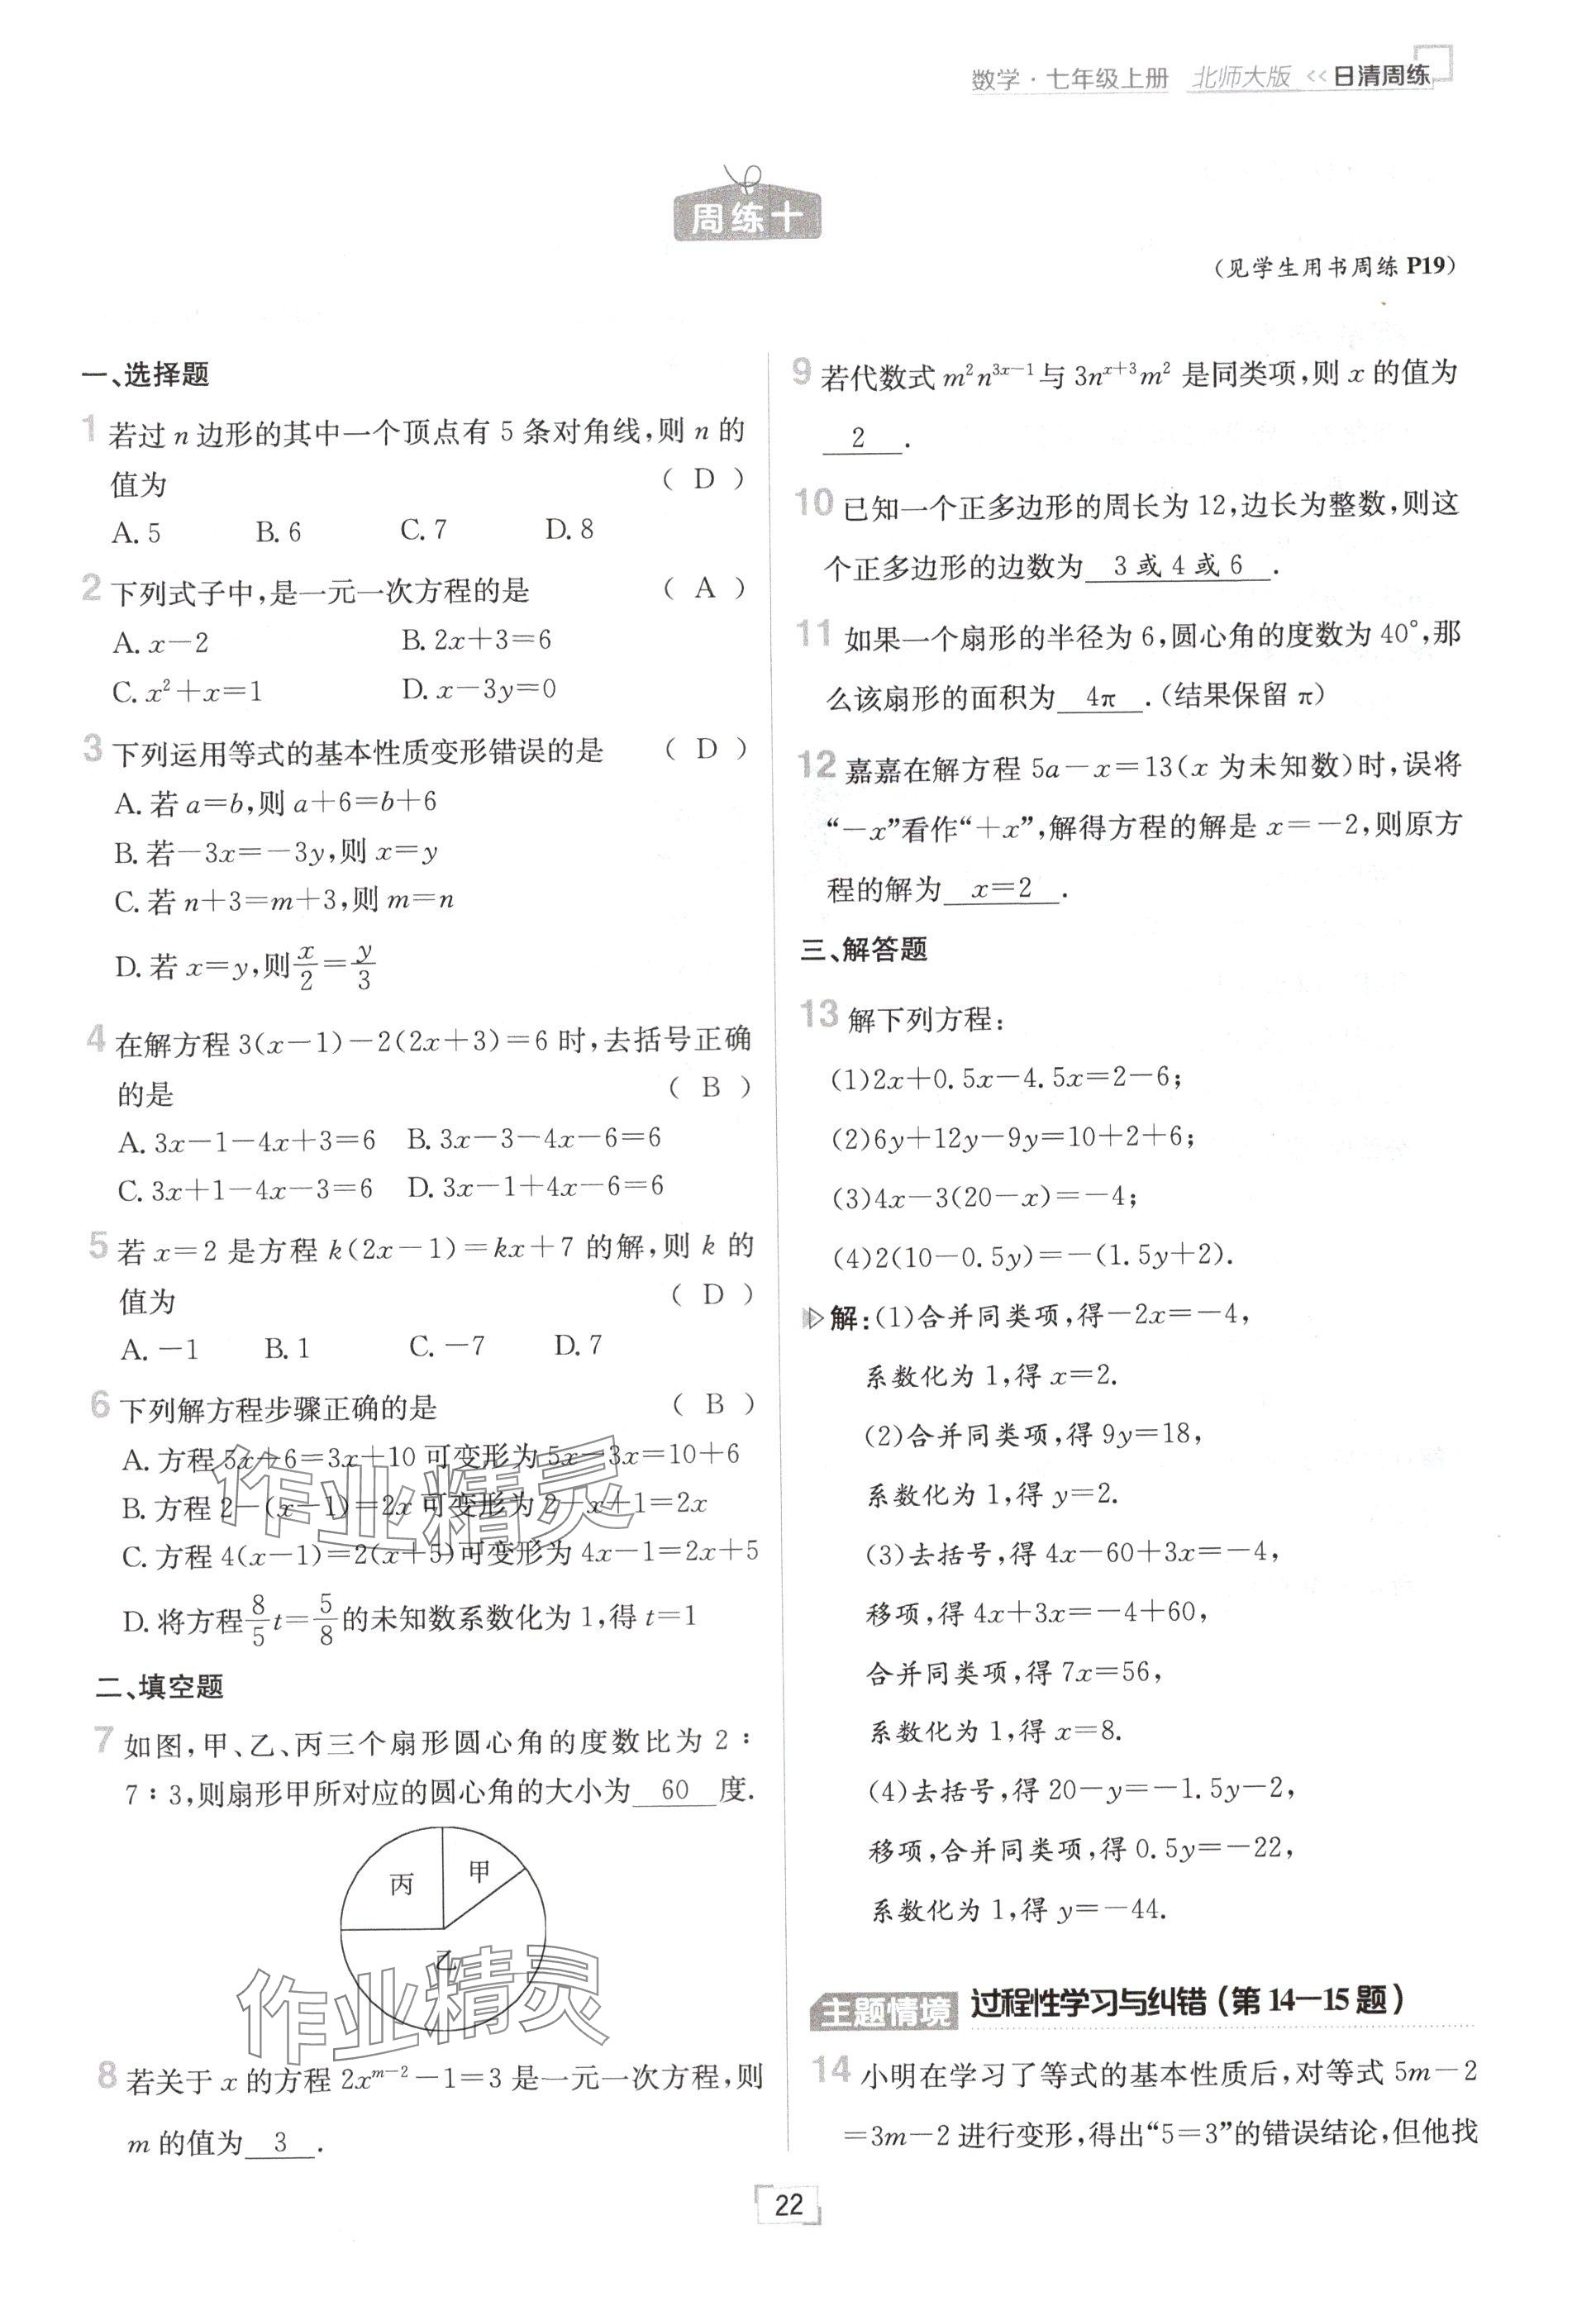 数学·七年级上册 北师大版 << 日清周练
周练十
(见学生用书周练 P19)
一、选择题
1 若过 n 边形的其中一个顶点有 5 条对角线,则 n 的
值为 ( D )
A. 5 B. 6 C. 7 D. 8
2 下列式子中,是一元一次方程的是 ( A )
A. x−2 B. 2x+3=6
C. x²+x=1 D. x−3y=0
3 下列运用等式的基本性质变形错误的是 ( D )
A. 若 a=b,则 a+6=b+6
B. 若−3x=−3y,则 x=y
C. 若 n+3=m+3,则 m=n
D. 若 x=y,则 x/2=y/3
4 在解方程 3(x−1)−2(2x+3)=6 时,去括号正确
的是 ( B )
A. 3x−1−4x+3=6 B. 3x−3−4x−6=6
C. 3x+1−4x−3=6 D. 3x−1+4x−6=6
5 若 x=2 是方程 k(2x−1)=kx+7 的解,则 k 的
值为 ( D )
A. −1 B. 1 C. −7 D. 7
6 下列解方程步骤正确的是 ( B )
A. 方程 5x+6=3x+10 可变形为 5x−3x=10+6
B. 方程 2−(x−1)=2x 可变形为 2−x+1=2x
C. 方程 4(x−1)=2(x+5)可变形为 4x−1=2x+5
D. 将方程 8/5 t=5/8 的未知数系数化为 1,得 t=1
二、填空题
7 如图,甲、乙、丙三个扇形圆心角的度数比为 2∶
7∶3,则扇形甲所对应的圆心角的大小为 60 度.
丙 甲
乙
8 若关于 x 的方程 2x^(m−2)−1=3 是一元一次方程,则
m 的值为 3 .
9 若代数式 m²n^(3x−1) 与 3n^(x+3)m² 是同类项,则 x 的值为
2 .
10 已知一个正多边形的周长为 12,边长为整数,则这
个正多边形的边数为 3 或 4 或 6 .
11 如果一个扇形的半径为 6,圆心角的度数为 40°,那
么该扇形的面积为 4π .(结果保留 π)
12 嘉嘉在解方程 5a−x=13(x 为未知数)时,误将
“−x”看作“+x”,解得方程的解是 x=−2,则原方
程的解为 x=2 .
三、解答题
13 解下列方程:
(1)2x+0.5x−4.5x=2−6;
(2)6y+12y−9y=10+2+6;
(3)4x−3(20−x)=−4;
(4)2(10−0.5y)=−(1.5y+2).
解:(1)合并同类项,得−2x=−4,
系数化为 1,得 x=2.
(2)合并同类项,得 9y=18,
系数化为 1,得 y=2.
(3)去括号,得 4x−60+3x=−4,
移项,得 4x+3x=−4+60,
合并同类项,得 7x=56,
系数化为 1,得 x=8.
(4)去括号,得 20−y=−1.5y−2,
移项,合并同类项,得 0.5y=−22,
系数化为 1,得 y=−44.
主题情境 过程性学习与纠错(第 14—15 题)
14 小明在学习了等式的基本性质后,对等式 5m−2
=3m−2 进行变形,得出“5=3”的错误结论,但他找
22
作业精灵
作业精灵